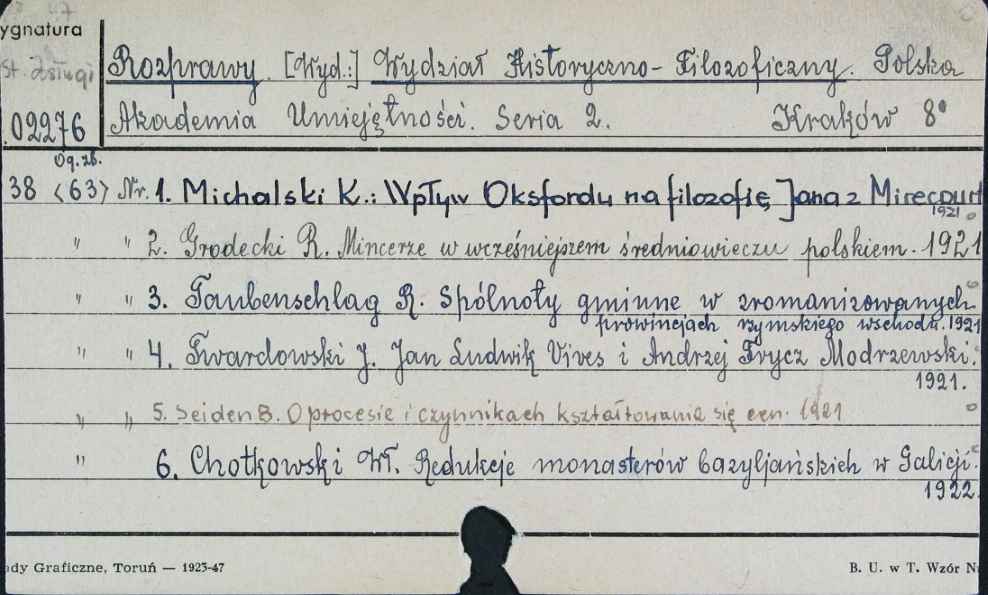 ygnatura
St. Zsługi
Rozprawy. [Wyd.:] Wydział Historyczno-Filozoficzny. Polska
02276 Akademia Umiejętności. Seria 2. Kraków 8°
Og. zb.
38 (63) Nr. 1. Michalski K.: Wpływ Oksfordu na filozofię Jana z Mirecourt
1921
" " 2. Grodecki R. Mincerze w wcześniejszem średniowieczu polskiem. 1921
" " 3. Taubenschlag R. Spólnoty gminne w zromanizowanych
prowincjach rzymskiego wschodu. 1921
" " 4. Twardowski J. Jan Ludwik Vives i Andrzej Frycz Modrzewski.
1921.
" " 5. Seiden B. O procesie i czynnikach kształtowania się cen. 1921
" 6. Chotkowski Wł. Redukcje monasterów bazyljańskich w Galicji.
1922.
ody Graficzne, Toruń — 1925-47
B. U. w T. Wzór N